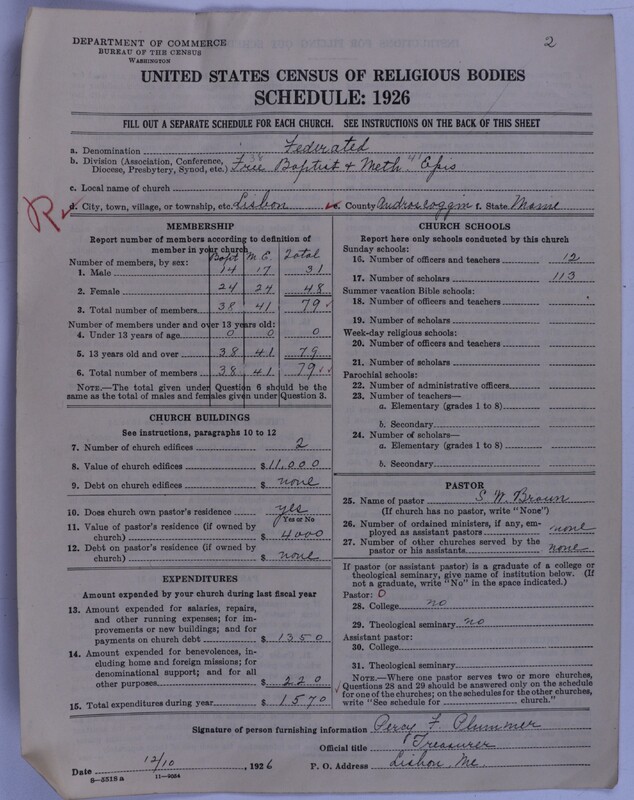 DEPARTMENT OF COMMERCE
BUREAU OF THE CENSUS
WASHINGTON
2
UNITED STATES CENSUS OF RELIGIOUS BODIES
SCHEDULE: 1926
FILL OUT A SEPARATE SCHEDULE FOR EACH CHURCH. SEE INSTRUCTIONS ON THE BACK OF THIS SHEET
a. Denomination Federated
b. Division (Association, Conference, Diocese, Presbytery, Synod, etc.) Free Baptist & Meth. Epis
c. Local name of church
R
d. City, town, village, or township, etc. Lisbon e. County Androscoggin f. State Maine
MEMBERSHIP
Report number of members according to definition of
member in your church
Number of members, by sex: Bapt M.E. Total
1. Male 14 17 31
2. Female 24 24 48
3. Total number of members 38 41 79
Number of members under and over 13 years old:
4. Under 13 years of age 0 0 0
5. 13 years old and over 38 41 79
6. Total number of members 38 41 79
NOTE.—The total given under Question 6 should be the
same as the total of males and females given under Question 3.
CHURCH BUILDINGS
See instructions, paragraphs 10 to 12
7. Number of church edifices 2
8. Value of church edifices $11,000
9. Debt on church edifices $ none
10. Does church own pastor's residence? yes
Yes or No
11. Value of pastor's residence (if owned by
church) $ 4000
12. Debt on pastor's residence (if owned by
church) $ none
EXPENDITURES
Amount expended by your church during last fiscal year
13. Amount expended for salaries, repairs,
and other running expenses; for im-
provements or new buildings; and for
payments on church debt $ 1350
14. Amount expended for benevolences, in-
cluding home and foreign missions; for
denominational support; and for all
other purposes $ 220
15. Total expenditures during year $ 1570
CHURCH SCHOOLS
Report here only schools conducted by this church
Sunday schools:
16. Number of officers and teachers 12
17. Number of scholars 113
Summer vacation Bible schools:
18. Number of officers and teachers
19. Number of scholars
Week-day religious schools:
20. Number of officers and teachers
21. Number of scholars
Parochial schools:
22. Number of administrative officers
23. Number of teachers—
a. Elementary (grades 1 to 8)
b. Secondary
24. Number of scholars—
a. Elementary (grades 1 to 8)
b. Secondary
PASTOR
25. Name of pastor S. W. Brown
(If church has no pastor, write "None")
26. Number of ordained ministers, if any, em-
ployed as assistant pastors none
27. Number of other churches served by the
pastor or his assistants none
If pastor (or assistant pastor) is a graduate of a college or
theological seminary, give name of institution below. (If
not a graduate, write "No" in the space indicated.)
Pastor: 0
28. College no
29. Theological seminary no
Assistant pastor:
30. College
31. Theological seminary
NOTE.—Where one pastor serves two or more churches,
Questions 28 and 29 should be answered only on the schedule
for one of the churches; on the schedules for the other churches,
write "See schedule for church."
Signature of person furnishing information Percy F. Plummer
Official title Treasurer
Date 12/10, 1926 P. O. Address Lisbon Me.
8—5518 a 11—9054